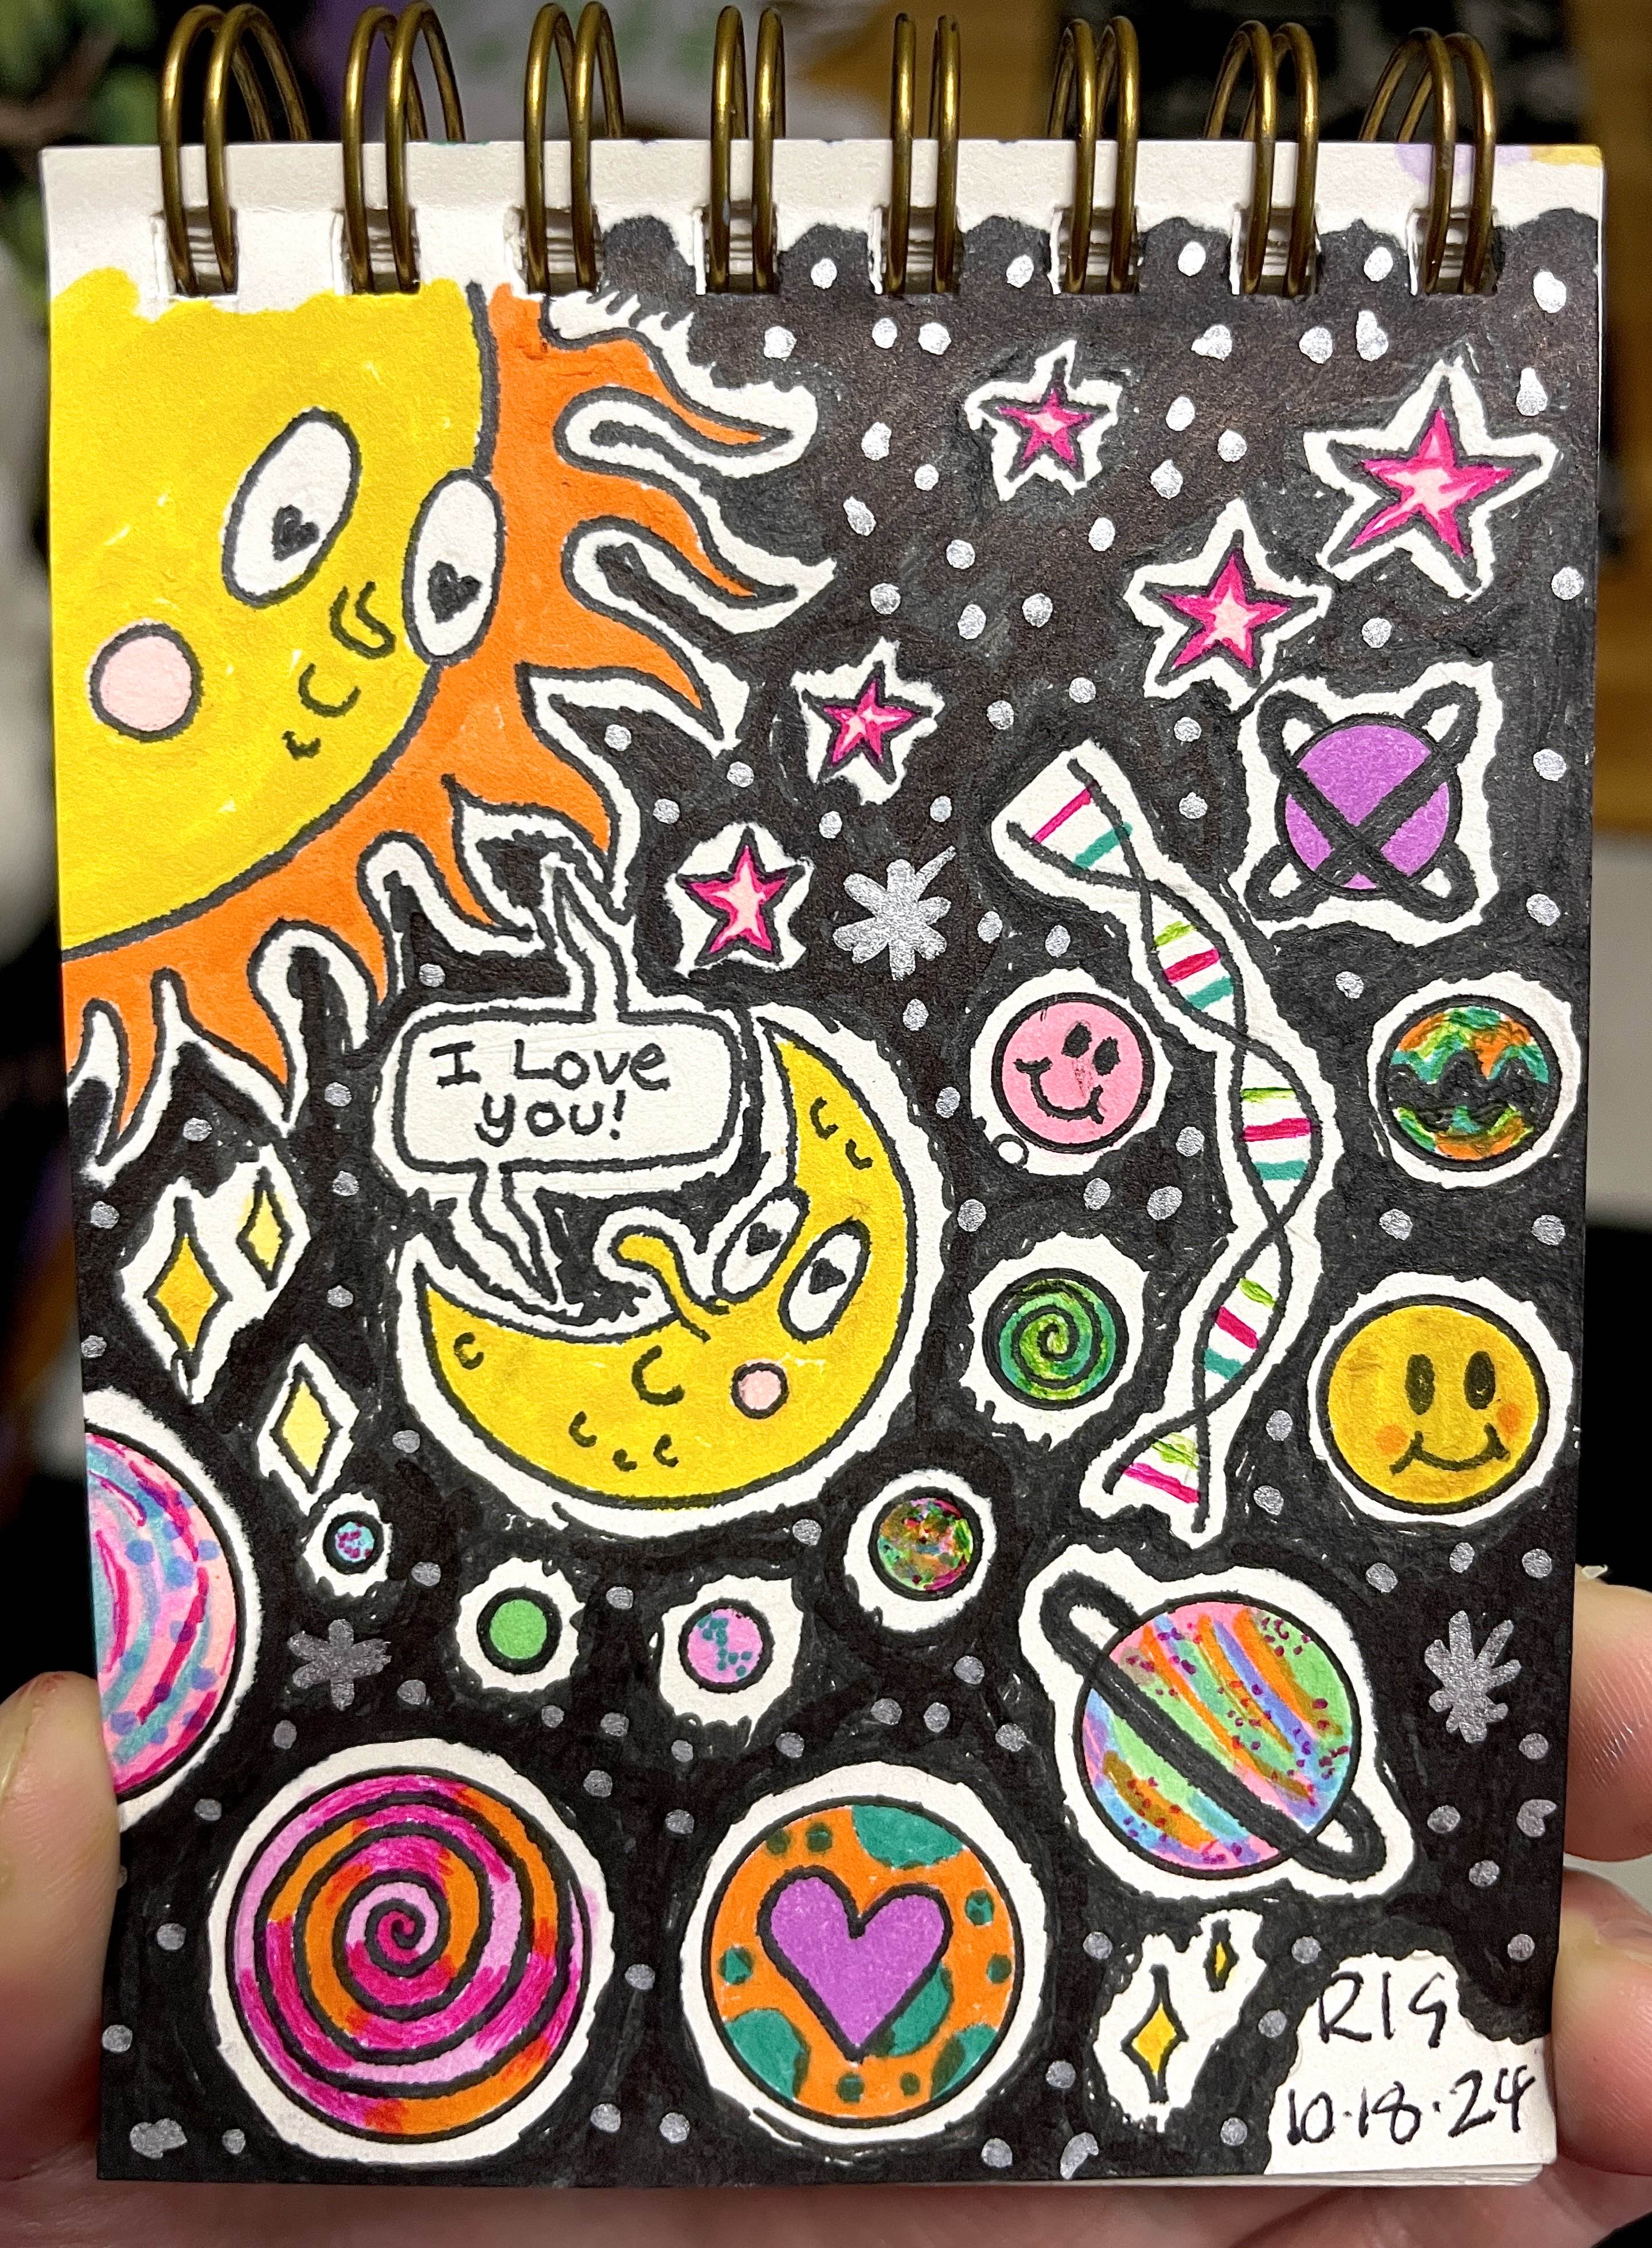 I Love
you!
RIG
10.18.24